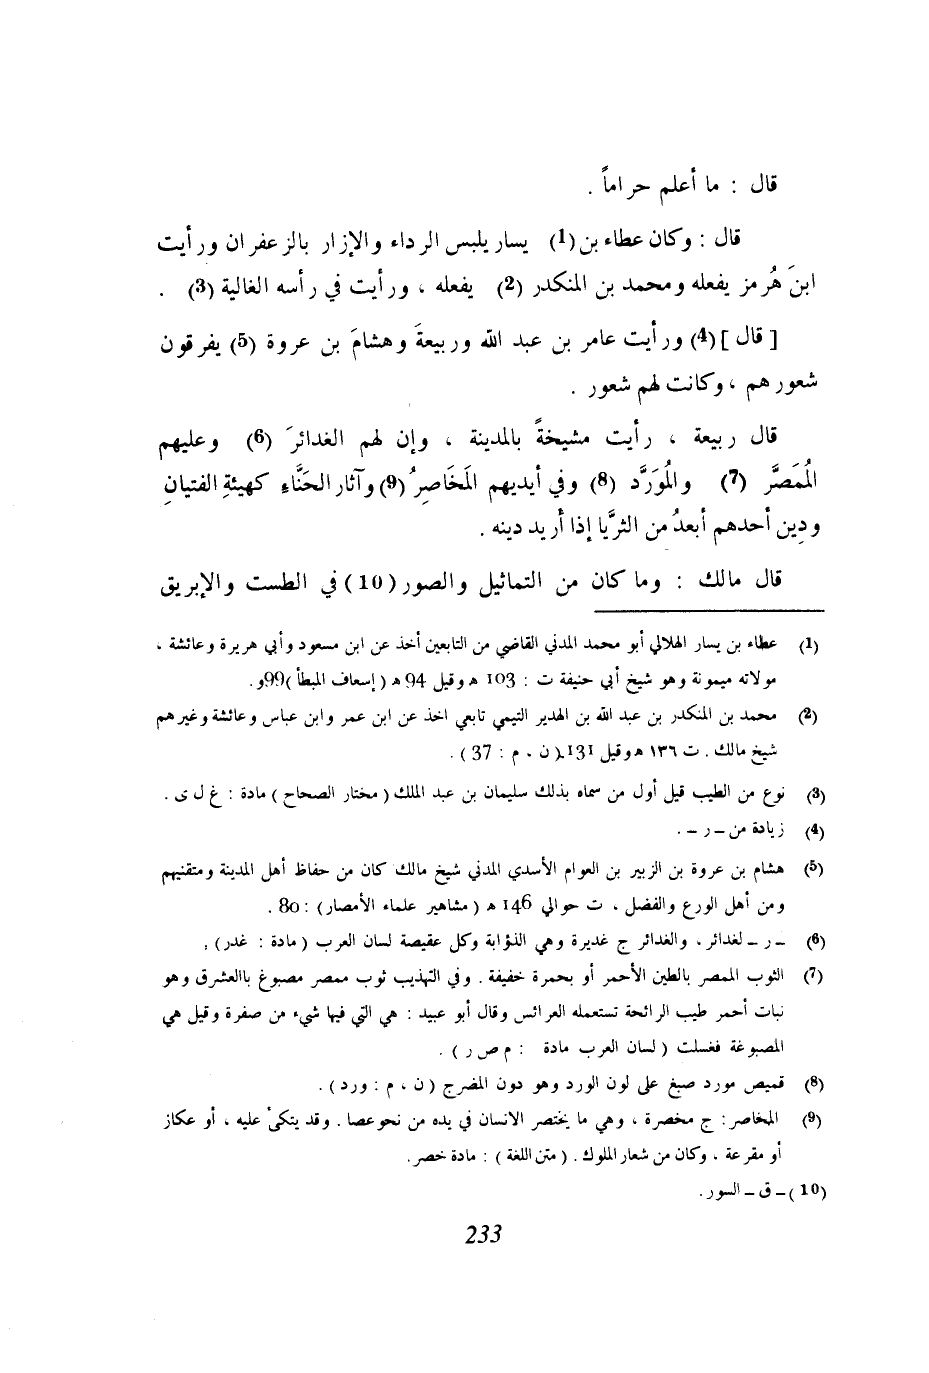 قال : ما أعلم حراماً .
قال : وكان عطاء بن (1) يسار يلبس الرداء والإزار بالزعفران ورأيت
ابنَ هُرمز يفعله ومحمد بن المنكدر (2) يفعله ، ورأيت في رأسه الغالية (3) .
[ قال ] (4) ورأيت عامر بن عبد الله وربيعةَ وهشامَ بن عروة (5) يفرقون
شعورهم ، وكانت لهم شعور .
قال ربيعة ، رأيت مشيخةً بالمدينة ، وإن لهم الغدائرَ (6) وعليهم
المُمَصَّر (7) والمُوَرَّد (8) وفي أيديهم المَخَاصِرُ (9) وآثار الحَنَّاءِ كهيئةِ الفتيانِ
ودِين أحدهم أبعدُ من الثرَّيا إذا أريد دينه .
قال مالك : وما كان من التماثيل والصور (10) في الطست والإبريق
(1) عطاء بن يسار الهلالي أبو محمد المدني القاضي من التابعين أخذ عن ابن مسعود وأبي هريرة وعائشة ،
مولاته ميمونة وهو شيخ أبي حنيفة ت : 103 ه وقيل 94 ه ( إسعاف المبطأ )99و.
(2) محمد بن المنكدر بن عبد الله بن الهدير التيمي تابعي اخذ عن ابن عمر وابن عباس وعائشة وغيرهم
شيخ مالك . ت ١٣٦ ه وقيل 131.( ن ، م : 37 ) .
(3) نوع من الطيب قيل أول من سماه بذلك سليمان بن عبد الملك ( مختار الصحاح ) مادة : غ ل ى .
(4) زيادة من ـ ر ـ .
(5) هشام بن عروة بن الزبير بن العوام الأسدي المدني شيخ مالك كان من حفاظ أهل المدينة ومتقنيهم
ومن أهل الورع والفضل ، ت حوالي 146 ه ( مشاهير علماء الأمصار ) : 80 .
(6) ـ ر ـ لغدائر ، والغدائر ج غديرة وهي الذؤابة وكل عقيصة لسان العرب ( مادة : غدر ) .
(7) الثوب الممصر بالطين الأحمر أو بحمرة خفيفة . وفي التهذيب ثوب ممصر مصبوغ باالعشرق وهو
نبات أحمر طيب الرائحة تستعمله العرائس وقال أبو عبيد : هي التي فيها شيء من صفرة وقيل هي
المصبوغة فغسلت ( لسان العرب مادة : م ص ر ) .
(8) قميص مورد صبغ على لون الورد وهو دون المضرج ( ن ، م : ورد ) .
(9) المخاصر : ج مخصرة ، وهي ما يختصر الانسان في يده من نحو عصا . وقد يتكىْ عليه ، أو عكاز
أو مقرعة ، وكان من شعار الملوك . ( متن اللغة ) : مادة خصر.
(10) ـ ق ـ السور.
233